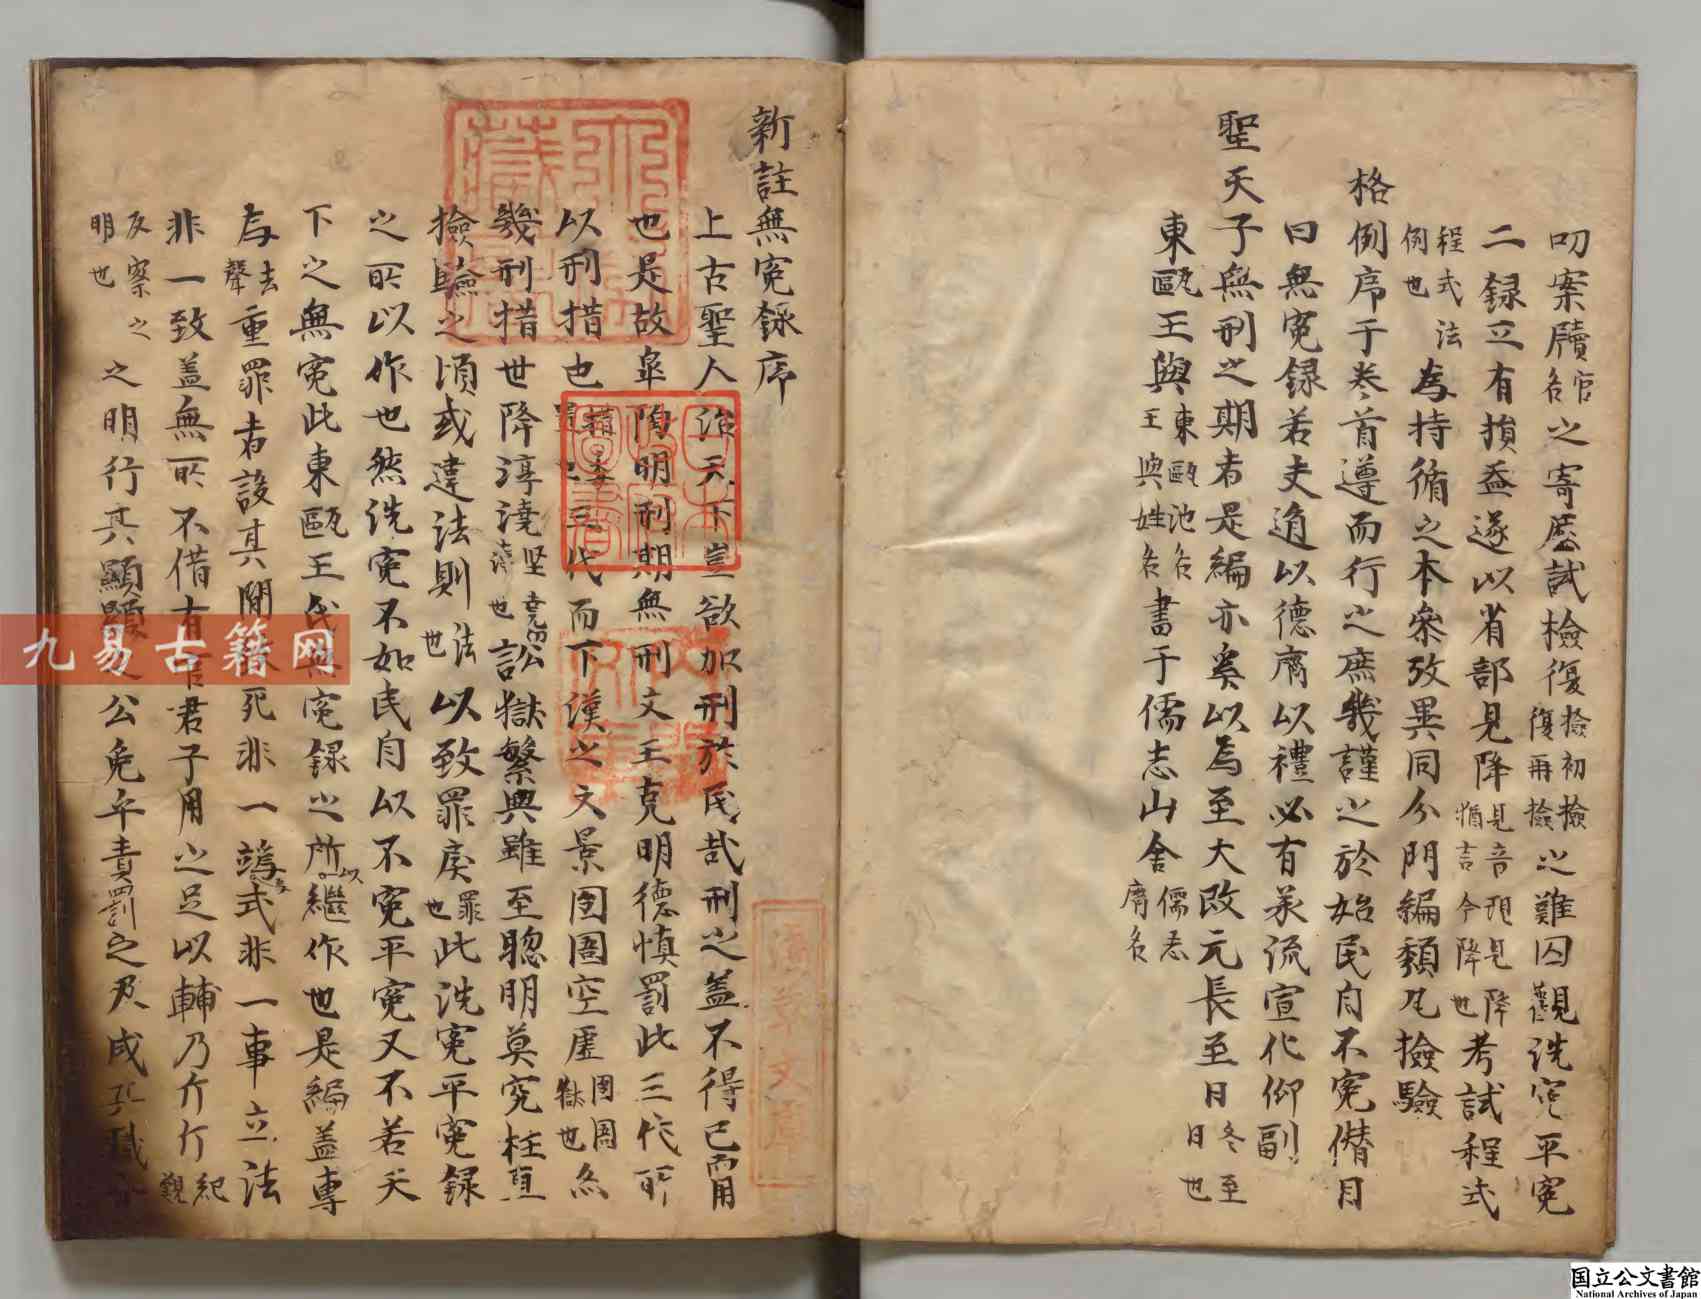 叨案牘官名之寄歷試檢復檢初檢復再檢之難囚觀洗冤平冤
二録立有損益遂以省部見降見音現見降猶言今降也考試程式
程式法例也為持循之本衆攷異同分門編類凡撿驗
格例序于卷首遵而行之庶幾謹之於始民自不冤僣目
曰無冤録若夫道以德齊以禮必有承流宣化仰副
聖天子無刑之期者是編亦奚以為至大改元長至日冬至日也
東甌王與東甌池名王與姓名書于儒志山舎儒志齋名
新註無冤録序
上古聖人治天下豈欲加刑於民哉刑之盖不得已而用
也是故皐陶明刑期無刑文王克明德慎罰此三代所
以刑措也措置也三代而下漢之文景囹圄空虚囹圄獄也然
幾刑措世降淳澆堅堯切漓也訟獄繁興雖至聦明莫究枉直
撿驗之頃或違法則法也以致罪戾罪也此洗冤平冤録
之所以作也然洗冤不如民自以不冤平冤又不若天
下之無冤此東甌王氏無冤録之所以繼作也是編盖專
為去聲重罪者設其間死非一端式非一事立法
非一致盖無所不借有官君子用之足以輔乃介介紀觀
反察之明也之明行其顯公免乎責罰之及咸
九易古籍网
国立公文書館
National Archives of Japan